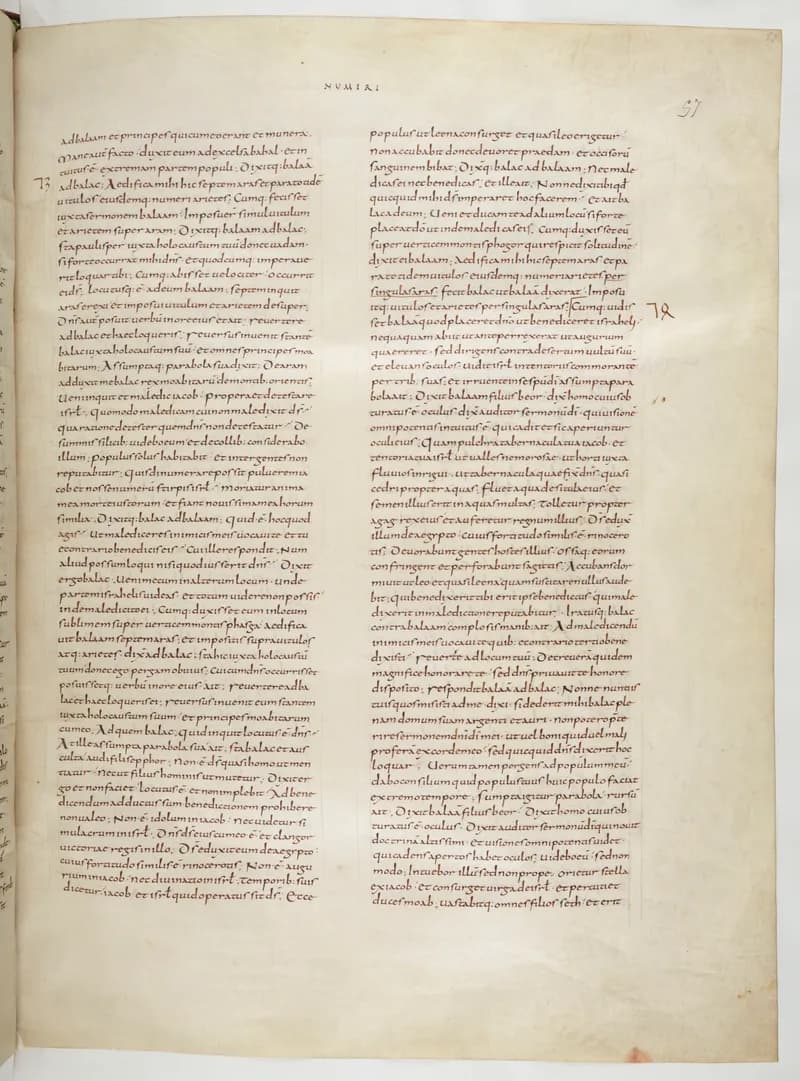 NUMERI
57
ad balaam et principes qui cum eo erant et munera.
Mane aut facto duxit eum ad excelsa baal. Et in
tuitus ē extremam partem populi; Dixitq: balaā
73
ad balac; Aedifica mihi hic septem aras et para totidē
uitulos eiusdemq: numeri arietes; Cumq: fecisset
iuxta sermonem balaam; Imposuer simul uitulum
et arietem super aram; Dixitq: balaam ad balac;
Sta paulisper iuxta holocaustum tuū donec uadam.
si forte occurrat mihi dns̄. et quodcumq: imperaue
rit loquar tibi; Cumq: abisset uelociter occurrit
ei ds̄. locutusq: ē ad eum balaam; septem inquit
aras erexi et imposui uitulum et arietem desuper;
Dns̄ aut posuit uerbū in ore eius et ait. reuertere
ad balac et haec loqueris; reuersus inuenit stantē
balac iuxta holocaustum suū. et omnes principes moa
bitarum; Assumptaq: parabola sua dixit; De aram
adduxit me balac rex moabitarū de montib: orientis;
Ueni inquit et maledic iacob. propera et detestare
isrł. Quomodo maledicam cui non maledixit ds̄.
qua ratione detester quem dns̄ non detestatur. De
summis silicib: uidebo eum et de collib: considerabo
illum; populus solus habitabit. et inter gentes non
reputabitur; Quis dinumerare possit puluerem ia
cob et nosse numerū stirpis isrł. moriatur anima
mea morte iustorum. et fiant nouissima mea horum
similia. Dixitq: balac ad balaam; Quid ē hoc quod
agis. Ut malediceres inimicis meis uocaui te et tu
e contrario benedicis eis. Cui ille respondit. Num
aliud possum loqui nisi quod iusserit dns̄. Dixit
ergo balac. Ueni mecum in alterum locum. unde
partem israhelis uideas. et totum uidere non possis
inde maledicito ei. Cumq: duxisset eum in locum
sublimem super uerticem montis phasga. Aedifica
uit balaam septem aras; et impositis supra uitulos
atq: arietes. dix ad balac; sta hic iuxta holocaustū
tuum donec ego pergam obuius; Cui cum dns̄ occurrisset
posuissetq: uerbū in ore eius ait; reuertere ad ba
lac et haec loqueris ei; reuersus inuenit eum stantem
iuxta holocaustum suum. et principes moabitarum
cum eo. Ad quem balac; Quid inquit locutus ē dns̄.
At ille assumpta parabola sua ait; sta balac et aus
culta audi fili sepphor; Non ē ds̄ quasi homo ut men
tiatur. nec ut filius hominis ut mutetur. Dixit er
go et non faciet. locutus ē et non implebit. Ad bene
dicendum adductus sum benedictionem prohibere
non ualeo; Non ē idolum in iacob. nec uidetur si
mulacrum in isrł. Dns̄ ds̄ eius cum eo ē et clangor
uictoriae regis in illo. Ds̄ eduxit eum de aegypto.
cuius fortitudo similis ē rinocerotis. Non ē augu
rium in iacob. nec diuinatio in isrł. temporib: suis
dicetur iacob et isrł quid operatus sit ds̄. Ecce
populus ut leena consurget et quasi leo erigetur.
non accubabit donec deuoret praedam. et occisorū
sanguinem bibat; Dixq: balac ad balaam; Nec male
dicas ei nec benedicas. Et ille ait. Nonne dixi tibi qđ
quicquid mihi ds̄ imperaret hoc facerem. Et ait ba
lac ad eum; Ueni et ducam te ad aliū locū si forte
placeat dō ut inde maledicas eis. Cumq: duxisset eū
super uerticem montis phogor qui respicit solitudinē.
dixit ei balaam; Aedifica mihi hic septem aras et pa
ra totidem uitulos eiusdemq: numeri arietes per
singulas aras. fecit balac ut balaā dixerat. Imposu
itq: uitulos et arietes per singulas aras; Cumq: uidis
set balaā quod placeret dnō ut benediceret israheli.
nequaquam abiit ut ante perrexerat ut augurium
quaereret. sed dirigens contra desertum uultū suū.
et eleuans oculos. uidit isrł in tentoriis commorantē
per trib: suas. et irruente in se spū dī assumpta para
bola ait; Dixit balaam filius beor. dix homo cuius ob
turatus ē oculus. dix auditor sermonū dī. qui uisionē
omnipotentis intuitus ē. qui cadit et sic aperiuntur
oculi eius; Quam pulchra tabernacula tua iacob. et
tentoria tua isrł ut ualles nemorosae. ut horti iuxta
fluuios inrigui. ut tabernacula quae fixit dns̄. quasi
cedri propter aquas. fluet aqua de situla eius. et
semen illius erit in aquas multas. Tolletur propter
agag rex eius et auferetur regnum illius. Ds̄ eduxꝰ
illum de aegypto. cuius fortitudo similis ē rinocero
tis. Deuorabunt gentes hostes illius. ossaq: eorum
confringent et perforabunt sagittis. Accubans dor
miuit ut leo et quasi leena quam suscitare nullus aude
bit; qui benedixerit tibi erit ipse benedictus. qui male
dixerit in maledictione reputabitur. Iratusq: balac
contra balaam complosis manib: ait. Ad maledicendū
inimicis meis uocaui te quib: e contrario tertio bene
dixisti. reuertere ad locum tuū. Decreuerā quidem
magnifice honorare te. sed dns̄ priuauit te honore
disposito; respondit balaā ad balac; Nonne nuntiis
tuis quos misisti ad me dixi. si dederit mihi balac ple
nam domum suam argenti et auri. non potero p̄te
rire sermonem dnī dī mei. ut uel boni quid uel mali
proferā ex corde meo. sed quicquid dns̄ dixerit hoc
loquar. Uerumtamen pergens ad populum meū.
dabo consilium quid populus tuus huic populo faciat
extremo tempore; sumpta igitur parabola rursū
ait. Dixit balaā filius beor. Dixit homo cuius ob
turatus ē oculus. Dixit auditor sermonū dī qui nouit
doctrinā altissimi. et uisiones omnipotentis uidet.
qui cadens apertos habet oculos. Uidebo eū. sed non
modo; Intuebor illū sed non prope. orietur stella
ex iacob. et consurget uirga de isrł. et percutiet
duces moab. uastabitq: omnes filios seth. et erit